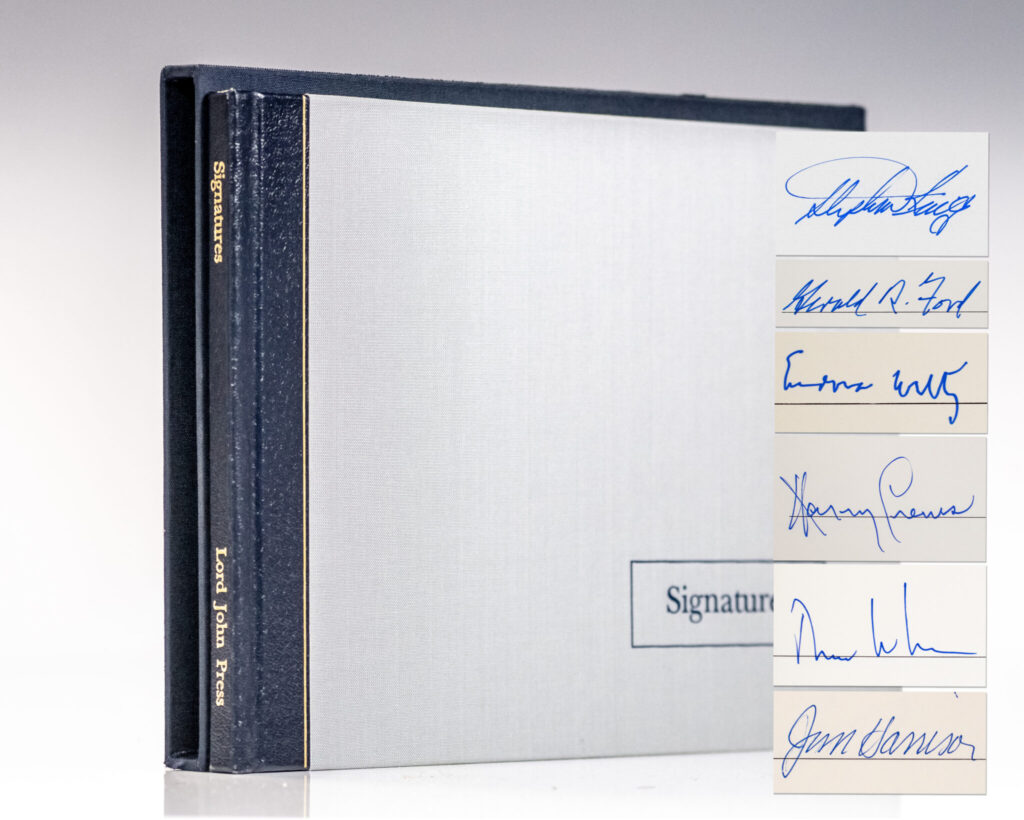 Signatures
Lord John Press
Signature
Stephen King
Gerald R. Ford
Eudora Welty
Harry Crews
Jim Harrison